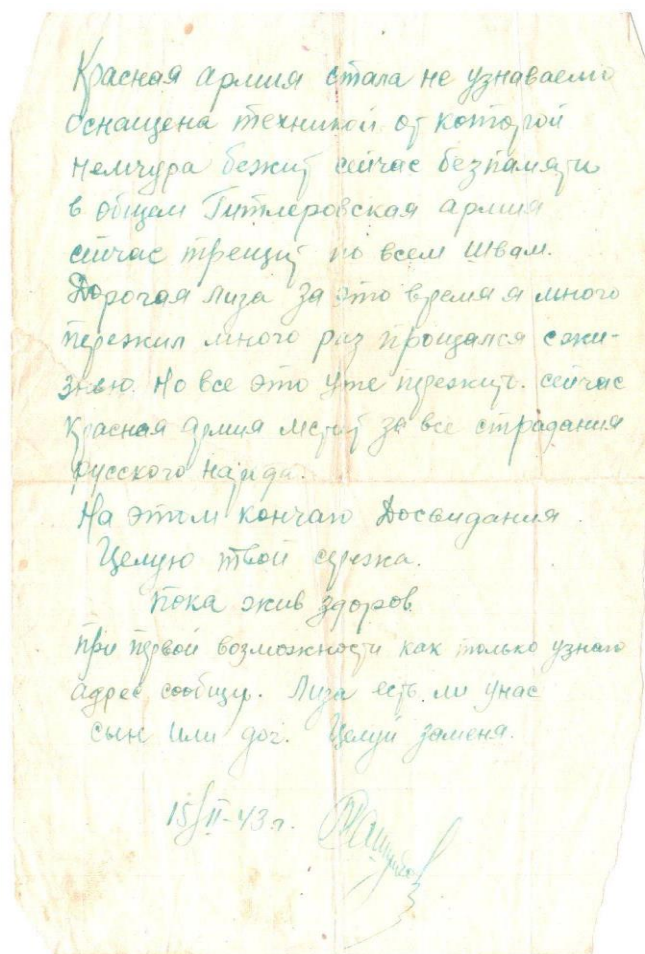 Красная армия стала не узнаваемо
оснащена техникой от которой
немчура бежит сейчас безпамяти
в общем Гитлеровская армия
сейчас трещит по всем швам.
Дорогая Лиза за это время я много
пережил много раз прощался сжи-
знью. Но все это уже пережить. сейчас
красная армия мстит за все страдания
русского народа.
На этом кончаю Досвидания.
Целую твой сережа.
пока жив здоров.
при первой возможности как только узнаю
адрес сообщу. Лиза есть ли унас
сын или доч. Целуй заменя.
15/II-43г.